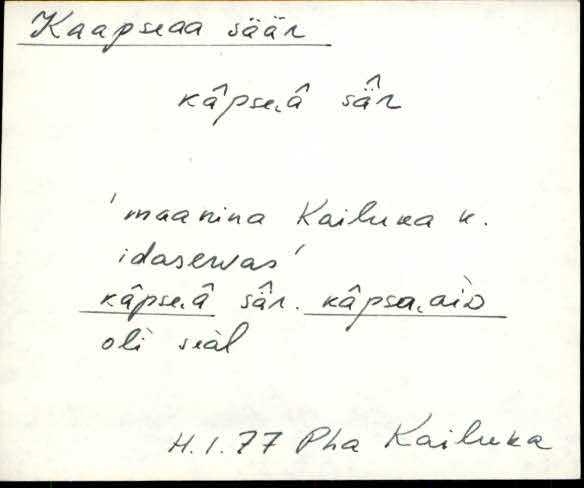 Kaapseaa säär
kâpse.â sä̂r
'maanina Kailuka k.
idaservas'
kâpse.â sä̂r. kâpsa.aìᴅ
olì seàl
H.I.77 Pha Kailuka